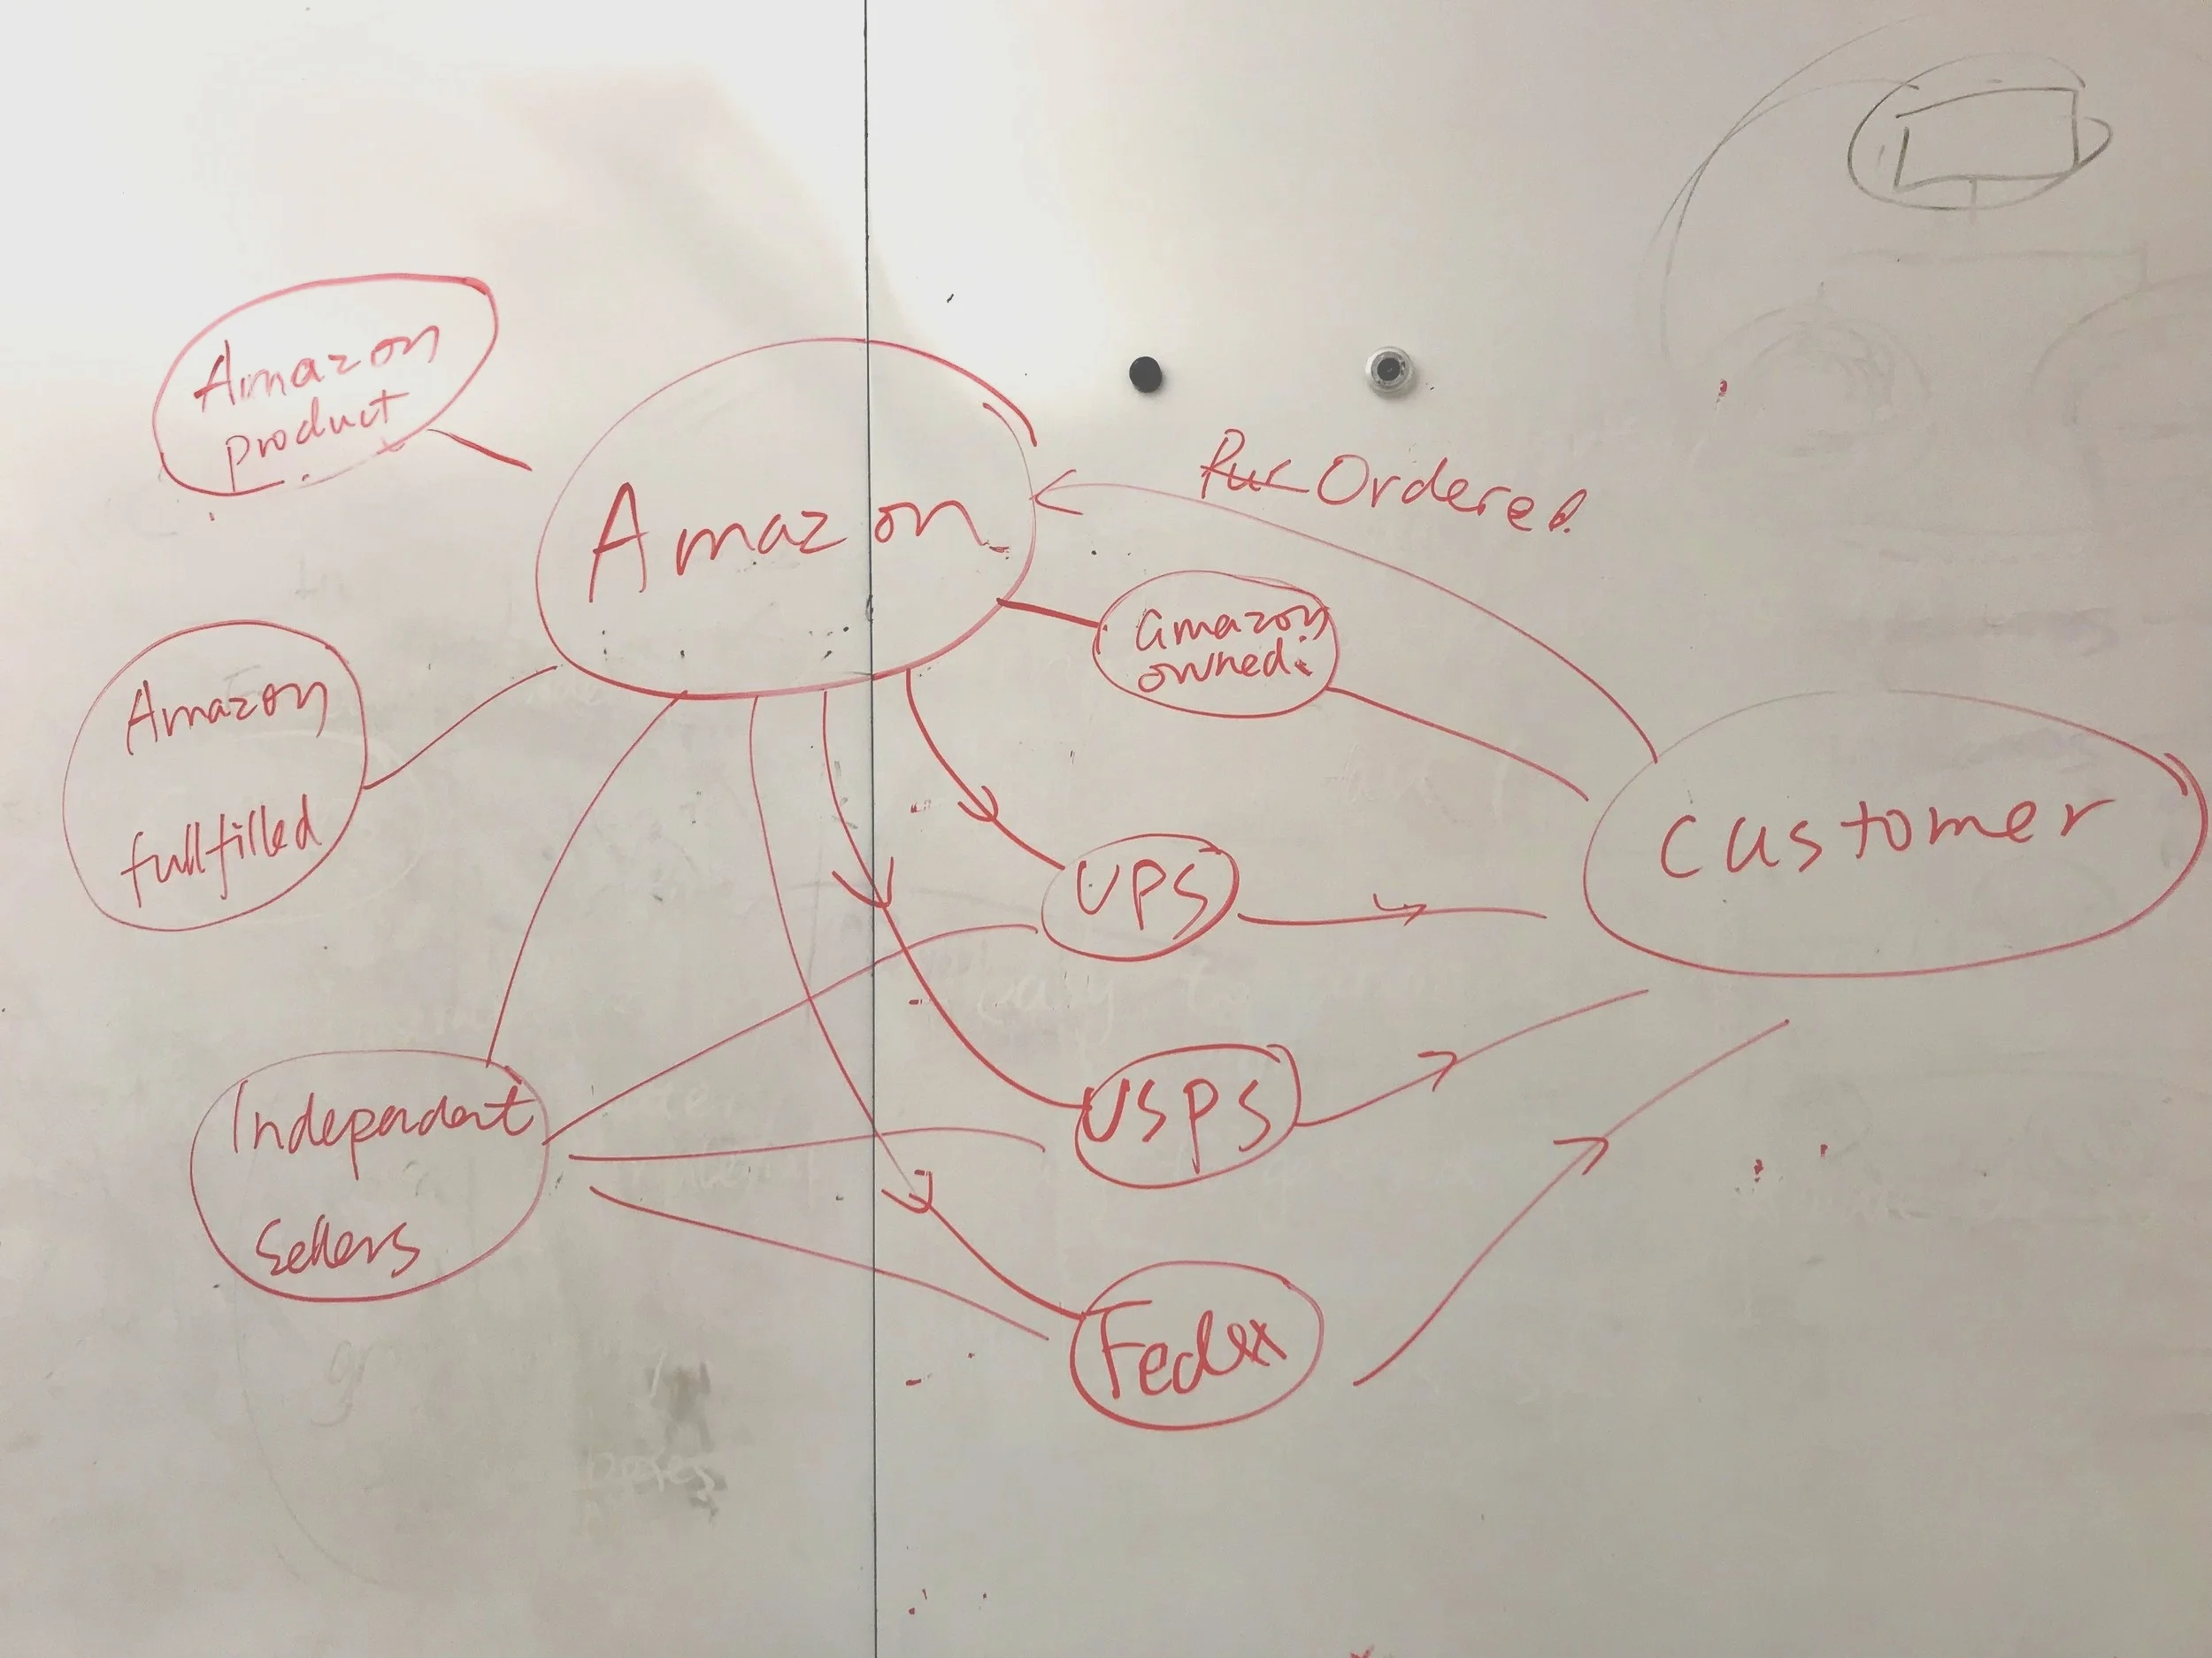 Amazon
product
Amazon
Pur Ordered
amazon
owned.
Amazon
fullfilled
customer
UPS
Independent
Sellers
USPS
Fedex